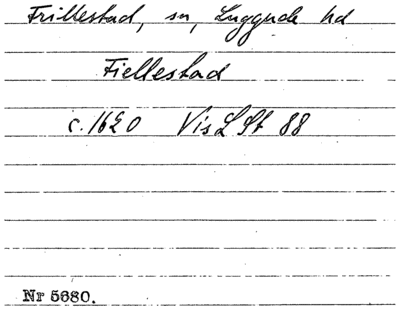 Frillestad, sn, Luggude hd
Fiellestad
c. 1620 Vis L St 88
Nr 5680.